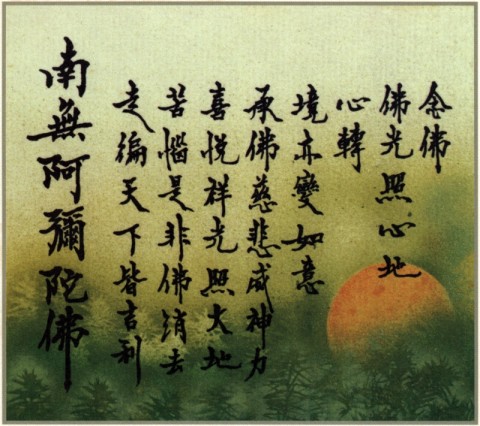 念佛
佛光照心地
心轉
境亦變如意
承佛慈悲威神力
喜悅祥光照大地
苦惱是非佛消去
走徧天下皆吉利
南無阿彌陀佛